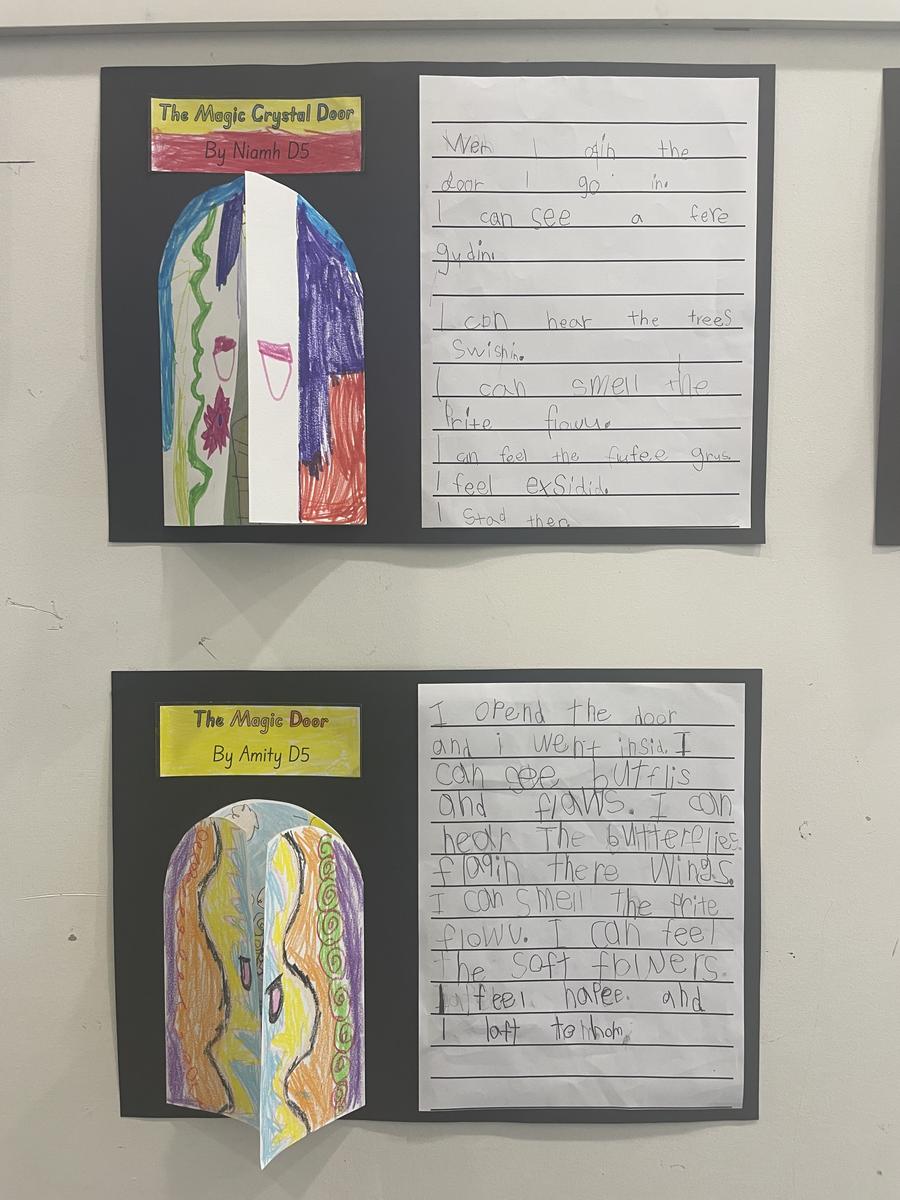 The Magic Crystal Door
By Niamh D5
Wen I opin the
door I go in.
I can see a fere
gudin.
I can hear the trees
Swishin.
I can smell the
Prite flowu.
I can feel the flufee grus.
I feel exSidid.
I Stad ther.
The Magic Door
By Amity D5
I opend the door
and i went insid. I
can see butflis
and flaws. I can
hear The buttterflies
flapin there Wings.
I can smell the Prite
flowu. I can feel
the soft flowers.
I feel hapee. and
I loft to hom.